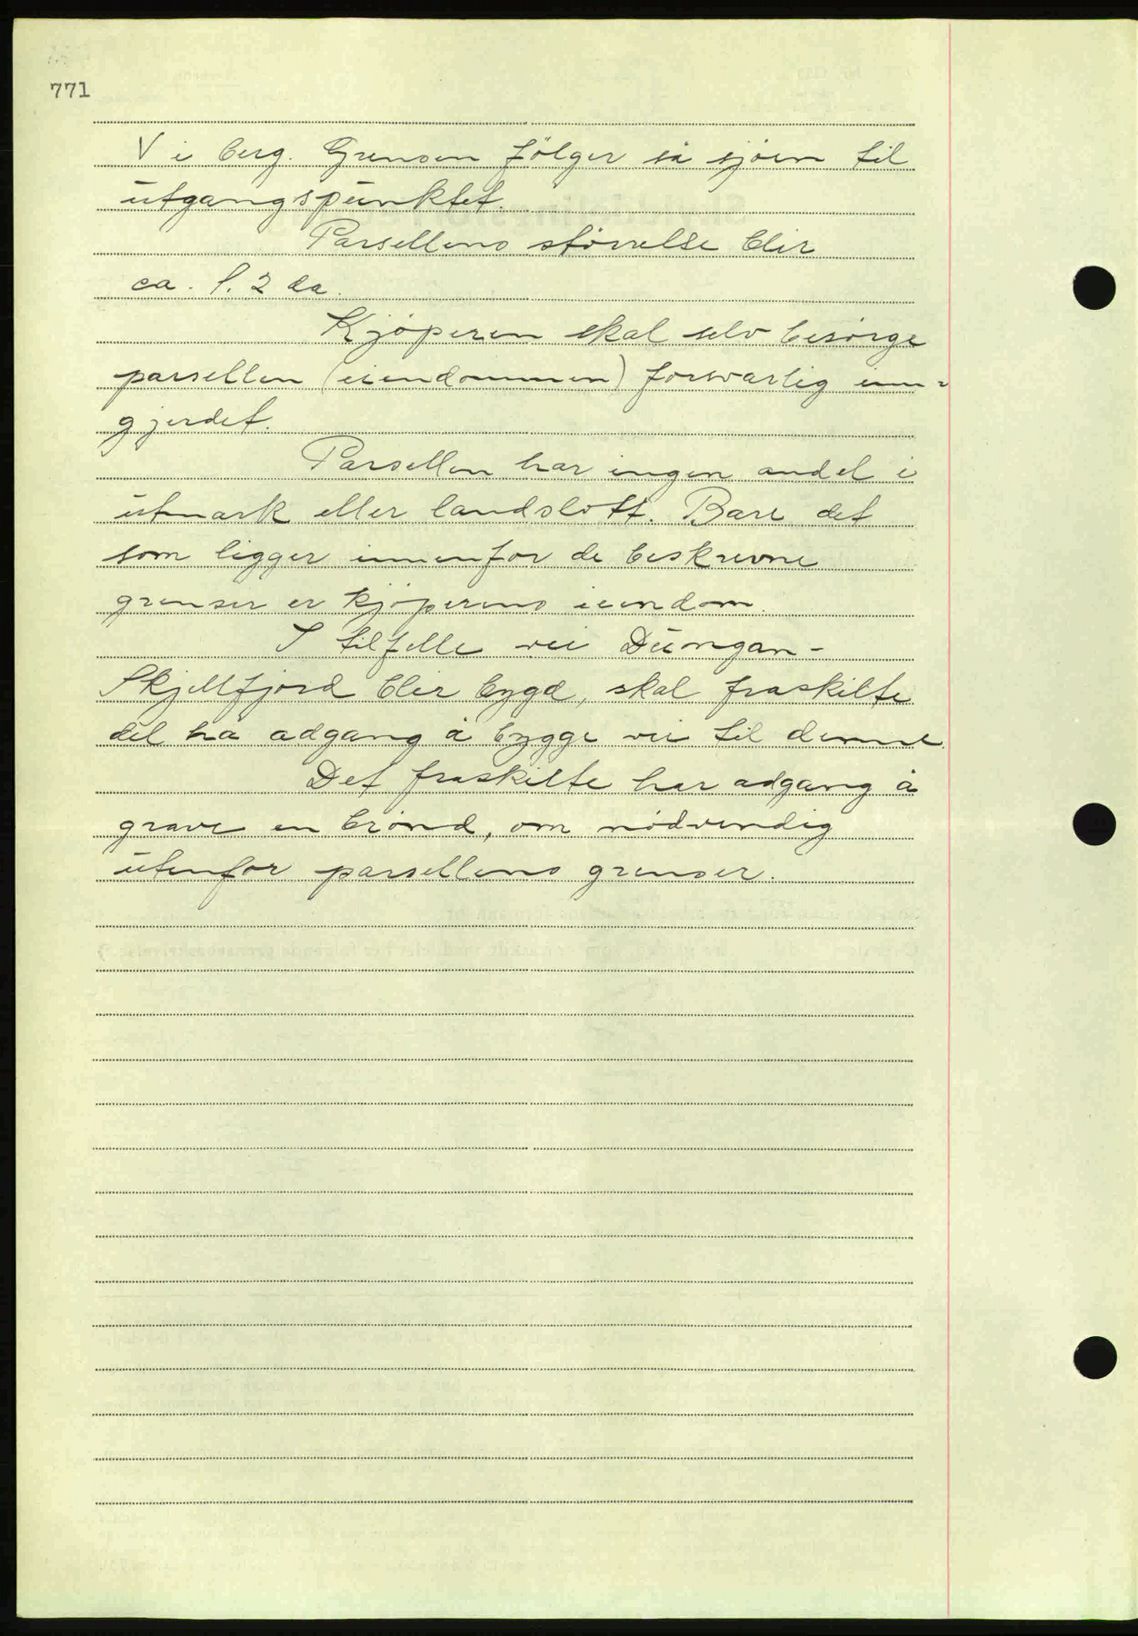 771
V i berg. Grensen følger så sjøen til
utgangspunktet.
Parsellens størrelse blir
ca. 1.2 da.
Kjøperen skal selv besørge
parsellen (eiendommen) forsvarlig inn-
gjerdet.
Parsellen har ingen andel i
utmark eller landslott. Bare det
som ligger innenfor de beskrevne
grenser er kjøperens eiendom.
I tilfelle vei
Skjellfjord blir bygd, skal fraskilte
del ha adgang å bygge vei til denne.
Det fraskilte har adgang å
grave en brønd, om nødvendig
utenfor parsellens grenser.